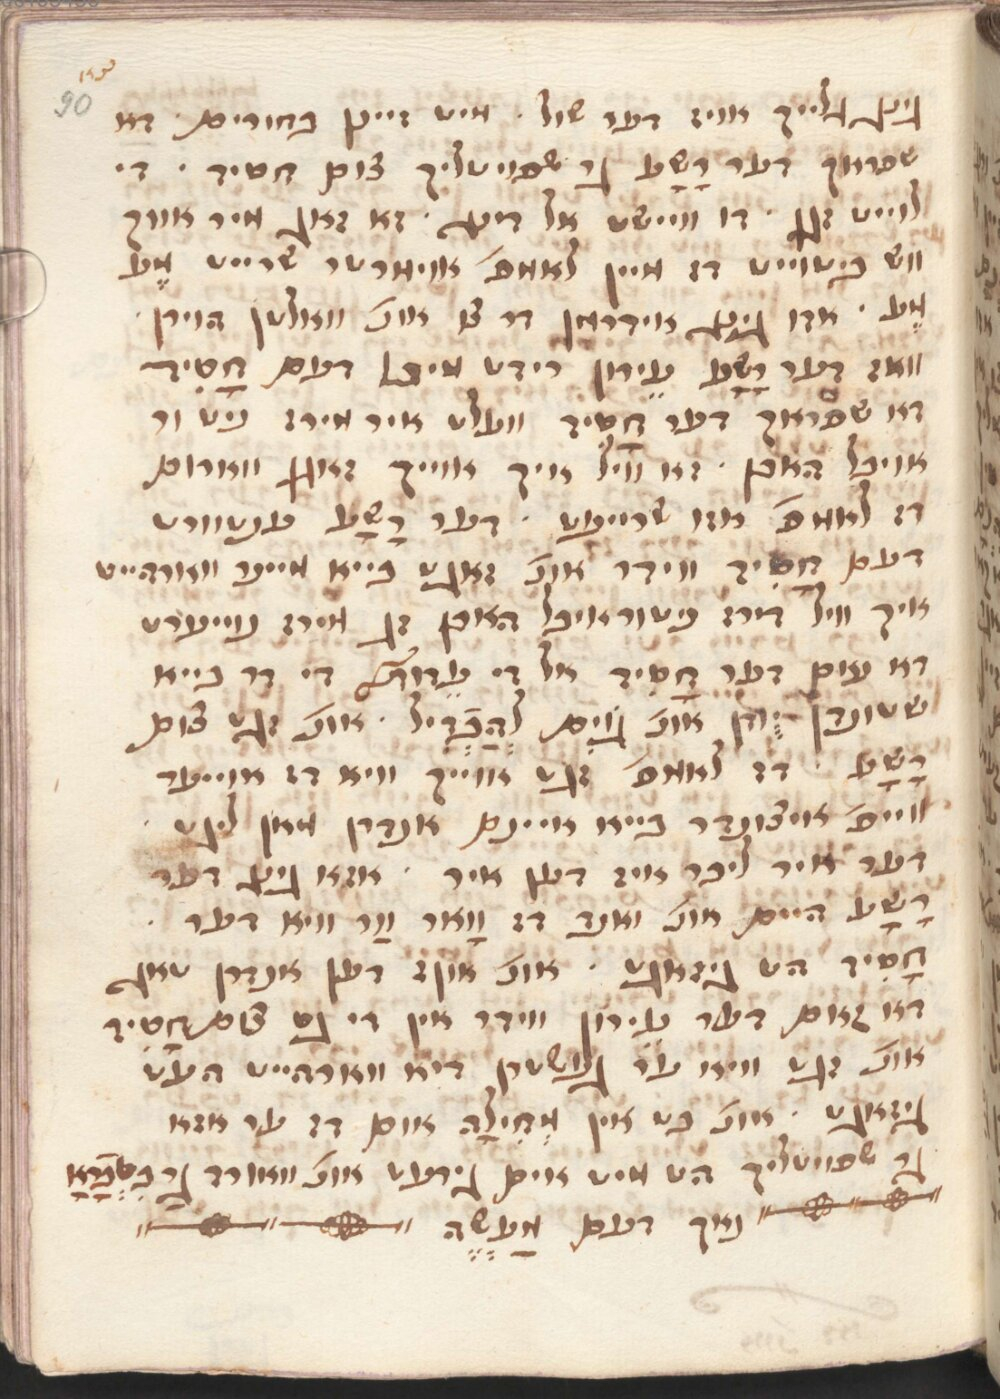 90
גיט גלייך אויז דער שול · מיט זיינן בחורים · דא
שפראך דער רָשָע גר שפויטליך צום חסיד · די
לוייט זגן · דו וויישט אל דינג · זא זאג מיר אויך
ווש בישוייט דז מיין לאמפ אויארטר שרייט מֶע
מֶע · אזו גינג אידרמן דר צו אונ' וואלטן הוירן ·
וואז דער רָשָע עירון רידט מיט דעם חָסִיד
דא שפראך דער חָסִיד וועלט איר מירז ניט ור
אויבל האבן · זא וויל איך אוייך זאגן ווארום
דז לאמפ אזו שרייעט · דער רָשָע ענטוורט
דעם חָסִיד ווידר אונ' זאגט בייא מיינר ווארהייט
איך וויל דירז ניט ור אויבל האבן זג מירז נוייערט
דא נאם דער חָסִיד אל די עדות די דר בייא
שטונדן יְהוּדִן אונ' גוֹיִם לְהַבְדִיל · אונ' זגט צום
רָשָע · דז לאמפ זגט אוייך וויא דז אוייער
ווייפ איצונדר בייא איינם אנדרן מאן ליגט ·
דער איר ליבר איז דען איר · אזא גינג דער
רָשָע היים אונ' ואנד דז וָואר וַור וויא דער ·
חָסִיד הט גיזאגט · אונ' אונז דען אנדרן טאג
דא גאם דער עירון ווידר אין די גס צום חָסִיד
אונ' זגט וויא ער גוושטן דיא ווארהייט העט
גיזאגט · אונ' בט אין מְחִילָה אום דז ער אזא
גר שפויטליך הט מיט אים גירעט אונ' ווארד גר
נאך דעם מַעֲשֶה